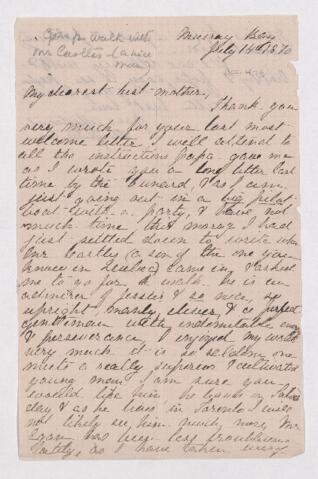 Going walk with
Mr Castles - a nice
man
Murray Bay
July 14th 1870
My dearest best mother,
Thank you
very much for your last most
welcome letter. I will attend to
all the instructions papa gave me
as I wrote you a long letter last
time by the Cunard, & as I am
just going out in a big pilot
boat with a party, I have not
much time this morng I had
just settled down to write when
Mr Castles (a son of the one you
know in ) came in & asked
me to go for a walk. He is an
admirer of Jessie's & so nice, so
upright manly clever, & a perfect
gentleman with indomitable energy
& perseverance I enjoyed my walk
very much it is so seldom one
meets a really superior & cultivated
young man. I am sure you
would like him. He leaves on Satur
day & as he lives in Toronto I will
not likely see him much more Mr
has been less troublesome
lately, as I have taken very